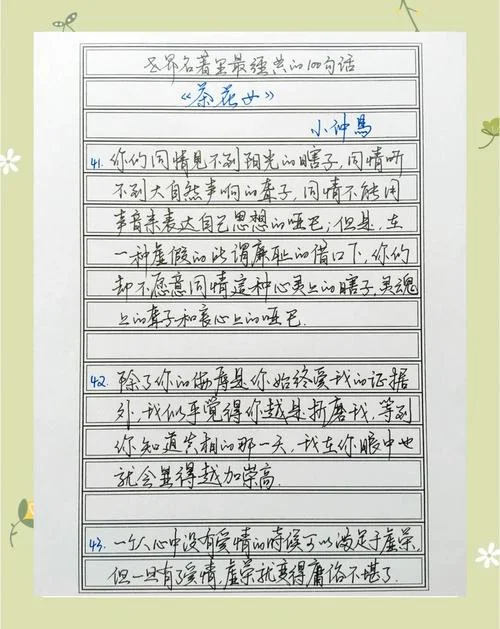 世界名著里最经典的100句话
《茶花女》
小仲馬
41. 你们同情見不到阳光的瞎子,同情听
不到大自然声响的聋子,同情不能用
声音来表达自己思想的哑巴;但是,在
一种虚假的所谓廉耻的借口下,你们
却不愿意同情這种心灵上的瞎子,灵魂
上的聋子和良心上的哑巴.
42. 除了你的侮辱是你始终爱我的证据
外,我似乎覺得你越是折磨我,等到
你知道真相的那一天,我在你眼中也
就会显得越加崇高.
43. 一个人心中没有爱情的時候可以满足于虚荣,
但一旦有了爱情,虚荣就变得庸俗不堪了.